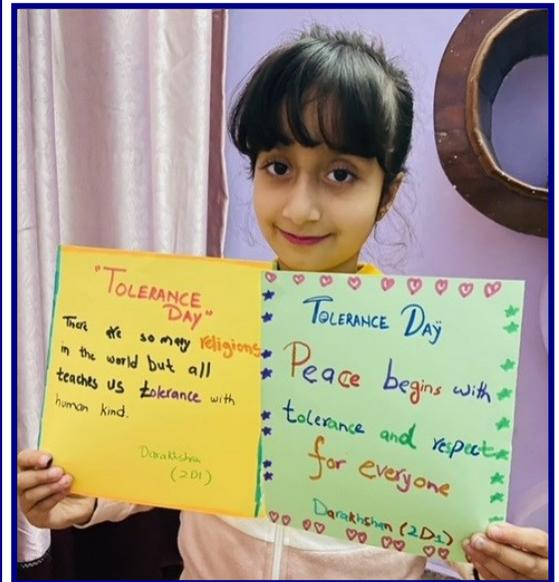 "TOLERANCE
DAY"
There are so many religions
in the world but all
teaches us tolerance with
human kind.
Darakhshan
(2D1)
TOLERANCE DAY
Peace begins with
tolerance and respect
for everyone
Darakhshan (2D1)